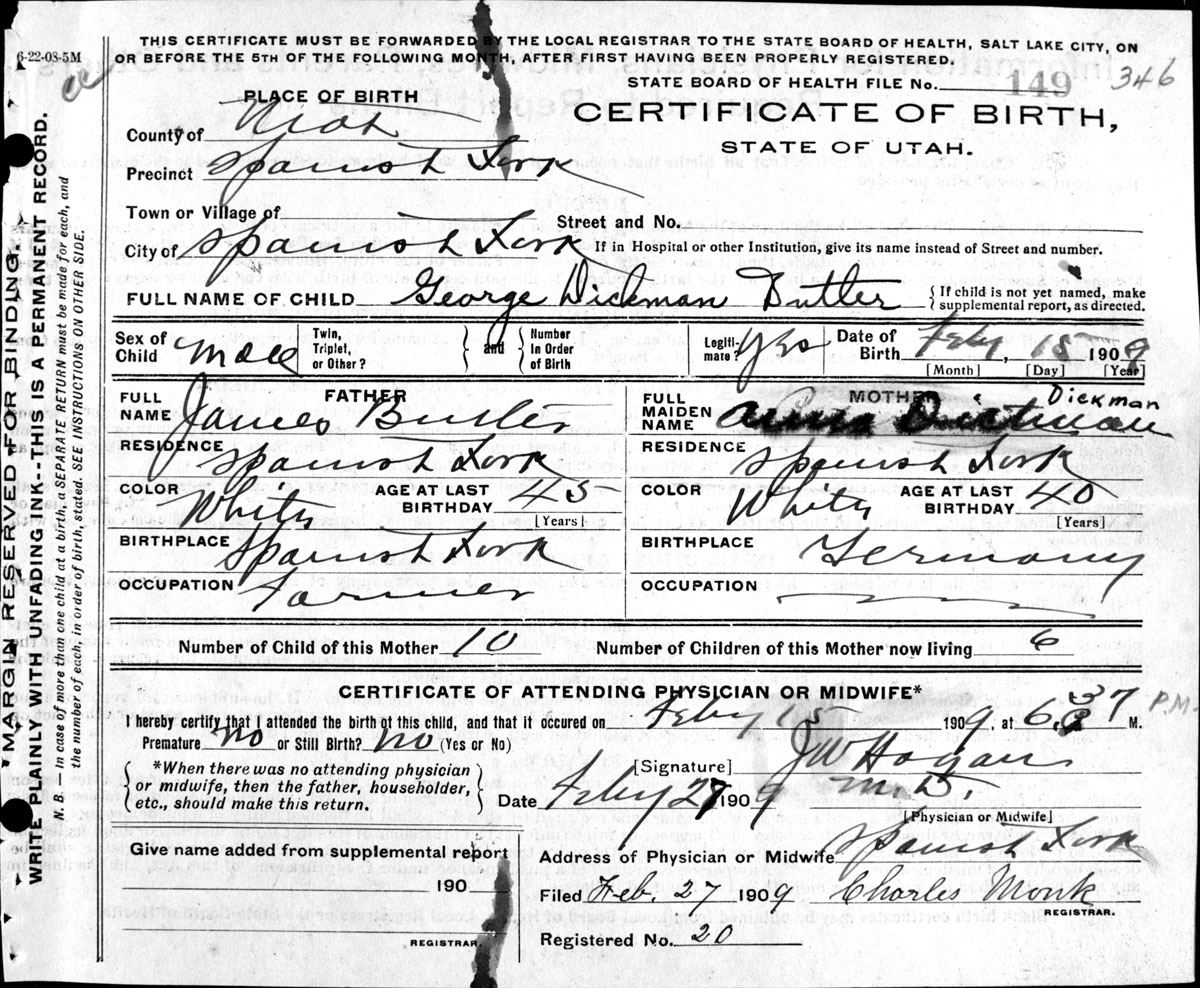 THIS CERTIFICATE MUST BE FORWARDED BY THE LOCAL REGISTRAR TO THE STATE BOARD OF HEALTH, SALT LAKE CITY, ON
OR BEFORE THE 5TH OF THE FOLLOWING MONTH, AFTER FIRST HAVING BEEN PROPERLY REGISTERED.
6-22-08-5M
STATE BOARD OF HEALTH FILE No. 149 346
PLACE OF BIRTH
CERTIFICATE OF BIRTH,
STATE OF UTAH.
County of Utah
Precinct Spanish Fork
Town or Village of
Street and No.
City of Spanish Fork
If in Hospital or other Institution, give its name instead of Street and number.
FULL NAME OF CHILD George Dickman Butler
{If child is not yet named, make
supplemental report, as directed.
Sex of Child Male
Twin, Triplet, or Other?
and
Number In Order of Birth
Legiti-mate? Yes
Date of Birth Feby 15 1909
[Month] [Day] [Year]
FATHER
FULL NAME James Butler
RESIDENCE Spanish Fork
COLOR White
AGE AT LAST BIRTHDAY 45
[Years]
BIRTHPLACE Spanish Fork
OCCUPATION Farmer
MOTHER
FULL MAIDEN NAME Anna Dickman
RESIDENCE Spanish Fork
COLOR White
AGE AT LAST BIRTHDAY 40
[Years]
BIRTHPLACE Germany
OCCUPATION
Number of Child of this Mother 10
Number of Children of this Mother now living 6
CERTIFICATE OF ATTENDING PHYSICIAN OR MIDWIFE*
I hereby certify that I attended the birth of this child, and that it occured on Feby 15 1909 at 6 37 P.M.
Premature no or Still Birth? no (Yes or No)
*When there was no attending physician
or midwife, then the father, householder,
etc., should make this return.
[Signature] J W Hogan
M.D.
Date Feby 27 1909
[Physician or Midwife]
Give name added from supplemental report
190
REGISTRAR.
Address of Physician or Midwife Spanish Fork
Filed Feb. 27 1909 Charles Monk
REGISTRAR.
Registered No. 20
"MARGIN RESERVED FOR BINDING."
WRITE PLAINLY WITH UNFADING INK--THIS IS A PERMANENT RECORD.
N. B.—In case of more than one child at a birth, a SEPARATE RETURN must be made for each, and
the number of each, in order of birth, stated. SEE INSTRUCTIONS ON OTHER SIDE.